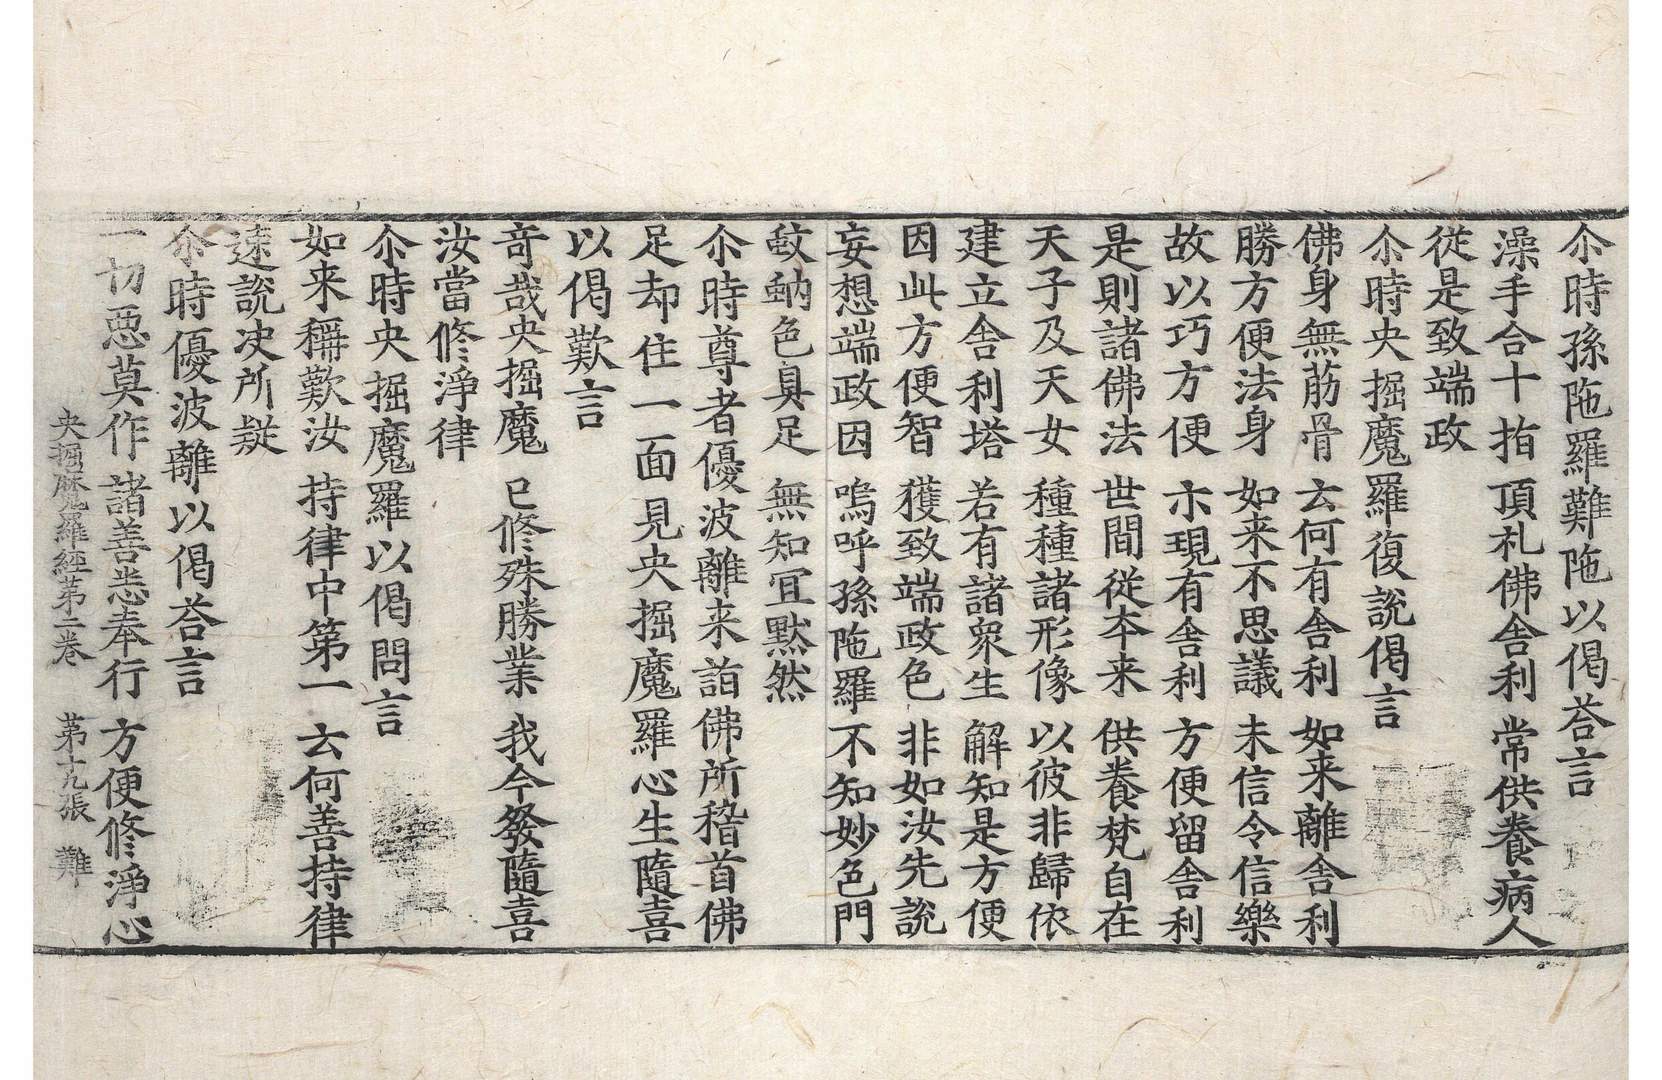 尒時孫陁羅難陁以偈荅言
澡手合十指　頂礼佛舎利　常供養病人
従是致端政
尒時央掘魔羅復說偈言
佛身無筋骨　云何有舎利　如来離舎利
勝方便法身　如来不思議　未信令信樂
故以巧方便　示現有舎利　方便留舎利
是則諸佛法　世間従夲来　供養梵自在
天子及天女　種種諸形像　以彼非歸依
建立舎利塔　若有諸衆生　解知是方便
因此方便智　獲致端政色　非如汝先說
妄想端政因　嗚呼孫陁羅　不知妙色門
蚊蚋色具足　無知宜默然
尒時尊者優波離来詣佛所稽首佛
足却住一面見央掘魔羅心生隨喜
以偈歎言
竒哉央掘魔　已修殊勝業　我今發隨喜
汝當修淨律
尒時央掘魔羅以偈問言
如来稱歎汝　持律中第一　云何善持律
速說决所疑
尒時優波離以偈荅言
一切惡莫作　諸善悉奉行　方便修淨心
央掘魔羅經第二卷　第十九張　難